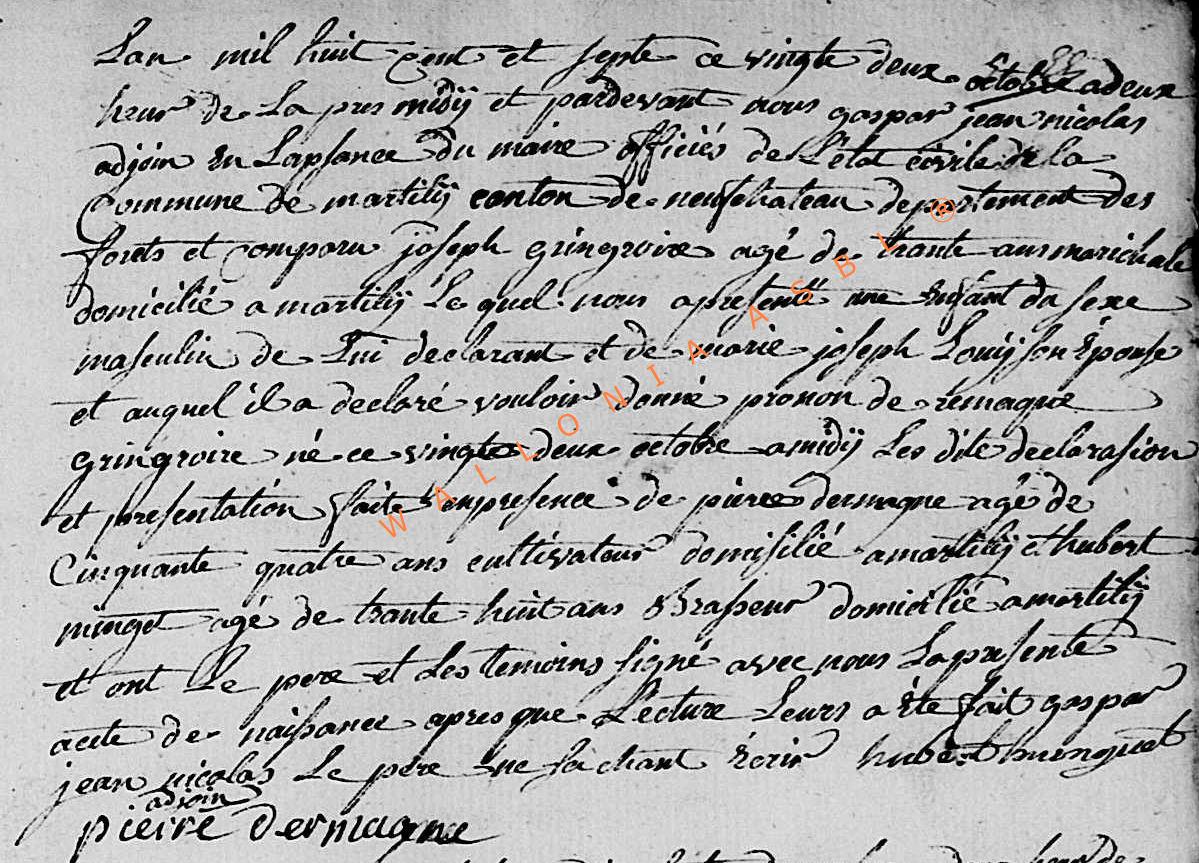 Lan mil huit cent et septe ce vingte deux octobre a deux
heur de La pres midÿ et pardevant nous gaspar jean nicolas
adjoin En Lapsance du maire officiés de L'état civile de la
Commune de martilÿ canton de neufchateau departement des
forets et comparu joseph gringroire agé de trante ans marichale
domicilié a martilÿ Le quel nous apresenté une Enfant du sexe
masculin de Lui declarant et de marie joseph Louÿs son Épouse
et auquel il a declaré vouloir donné pronon de remaque
gringroire né ce vingte deux octobre a midÿ Les dite declarasion
et presentation faite enpresence de pieree dermagne agé de
Cinquante quatre ans cultivateur domisilié a martilÿ et hubert
minget agé de trante huit ans Brasseur domicilié a martilÿ
et ont Le pere et Les temoins signé avec nous Lapresente
acte de naissance apres que Lecture Leurs a Ete fait gaspar
jean nicolas Le père ne sachant Ecrir hubert minguet
adjoin
pierre dermagne
WALLONIA ASBL ®